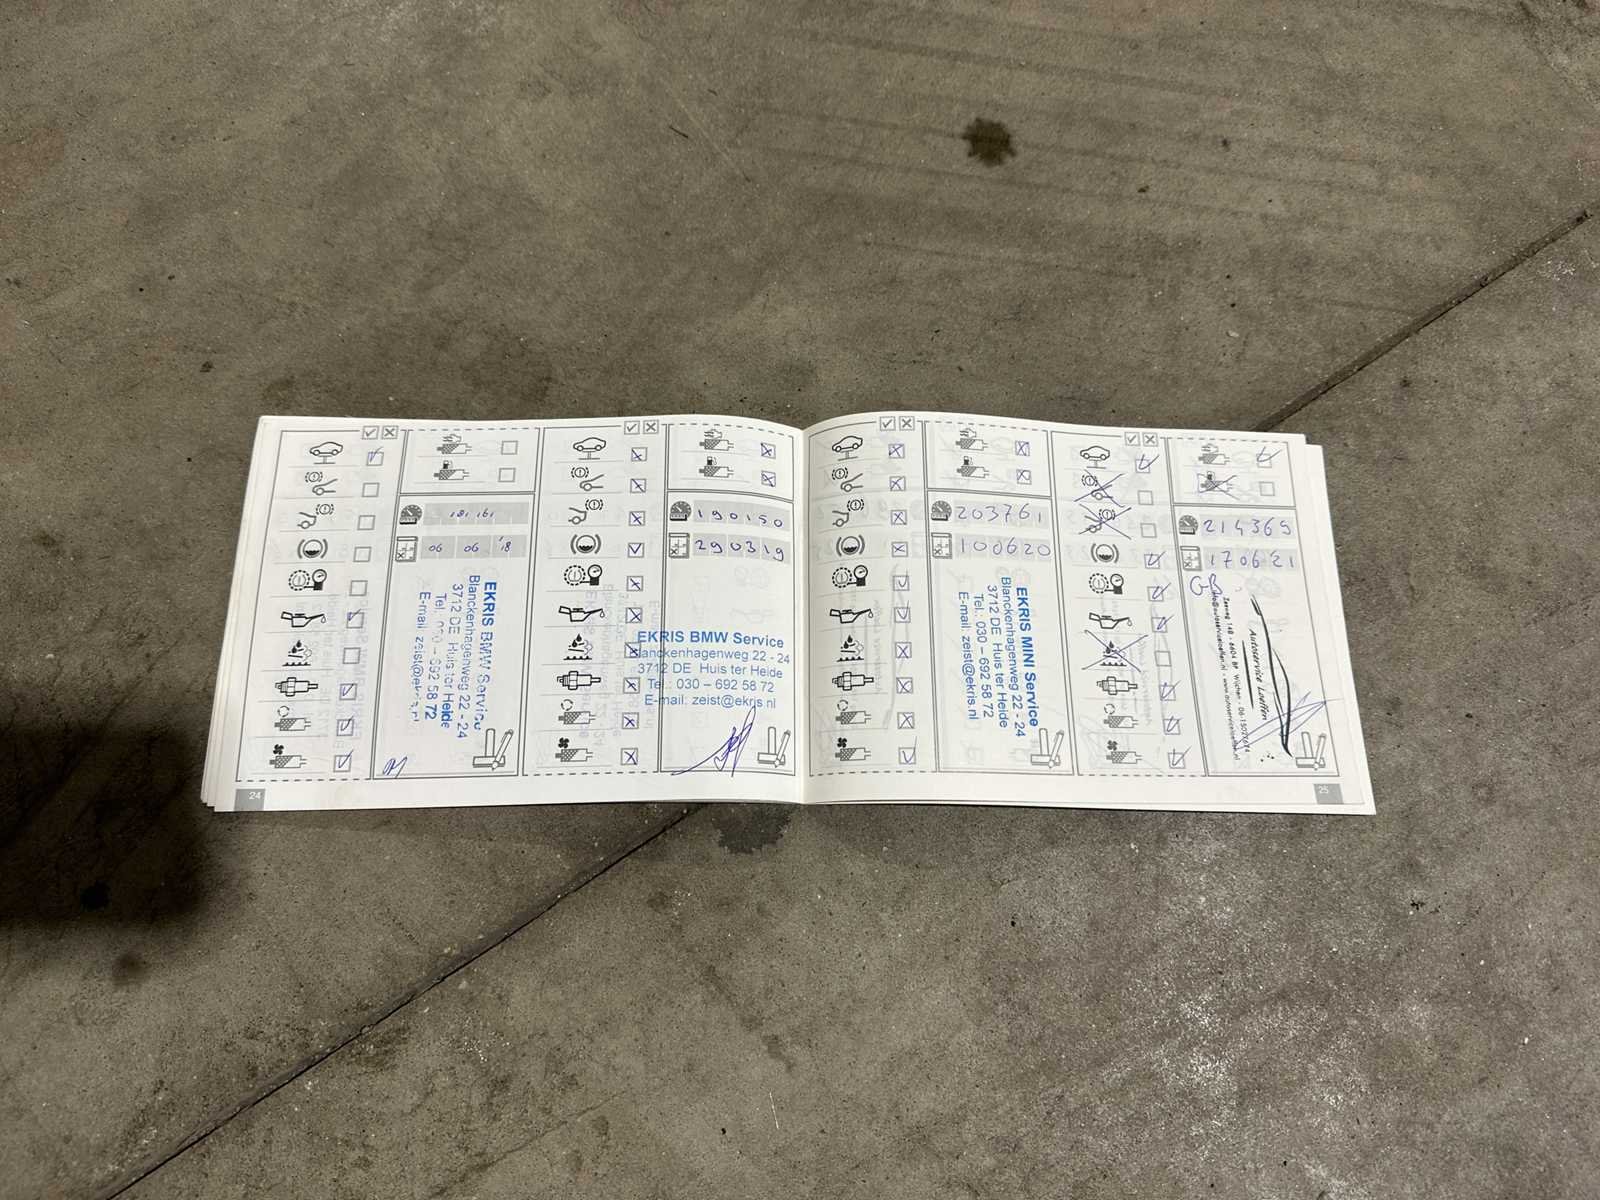 181 161
06 06 '18
EKRIS BMW Service
Blanckenhagenweg 22 - 24
3712 DE Huis ter Heide
Tel. 030 – 692 58 72
E-mail: zeist@ekris.nl
24
190150
290319
EKRIS BMW Service
Blanckenhagenweg 22 - 24
3712 DE Huis ter Heide
Tel.: 030 – 692 58 72
E-mail: zeist@ekris.nl
203761
100620
EKRIS MINI Service
Blanckenhagenweg 22 - 24
3712 DE Huis ter Heide
Tel. 030 – 692 58 72
E-mail: zeist@ekris.nl
214365
170621
Autoservice Loeffen
6604 BP Wijchen
25